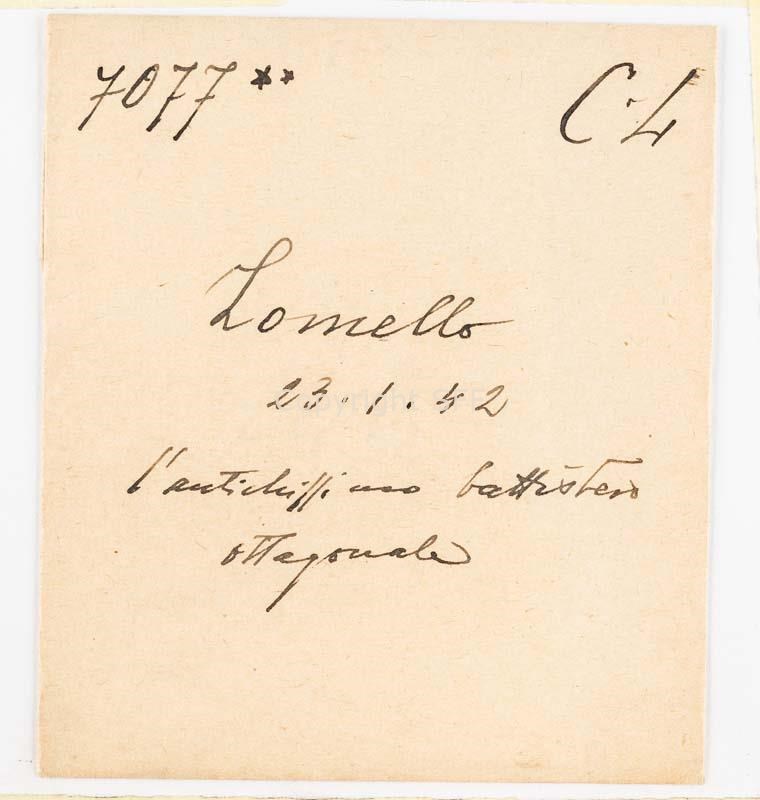 7077** C.L
Lomello
23.1.42
l'antichissimo battistero
ottagonale